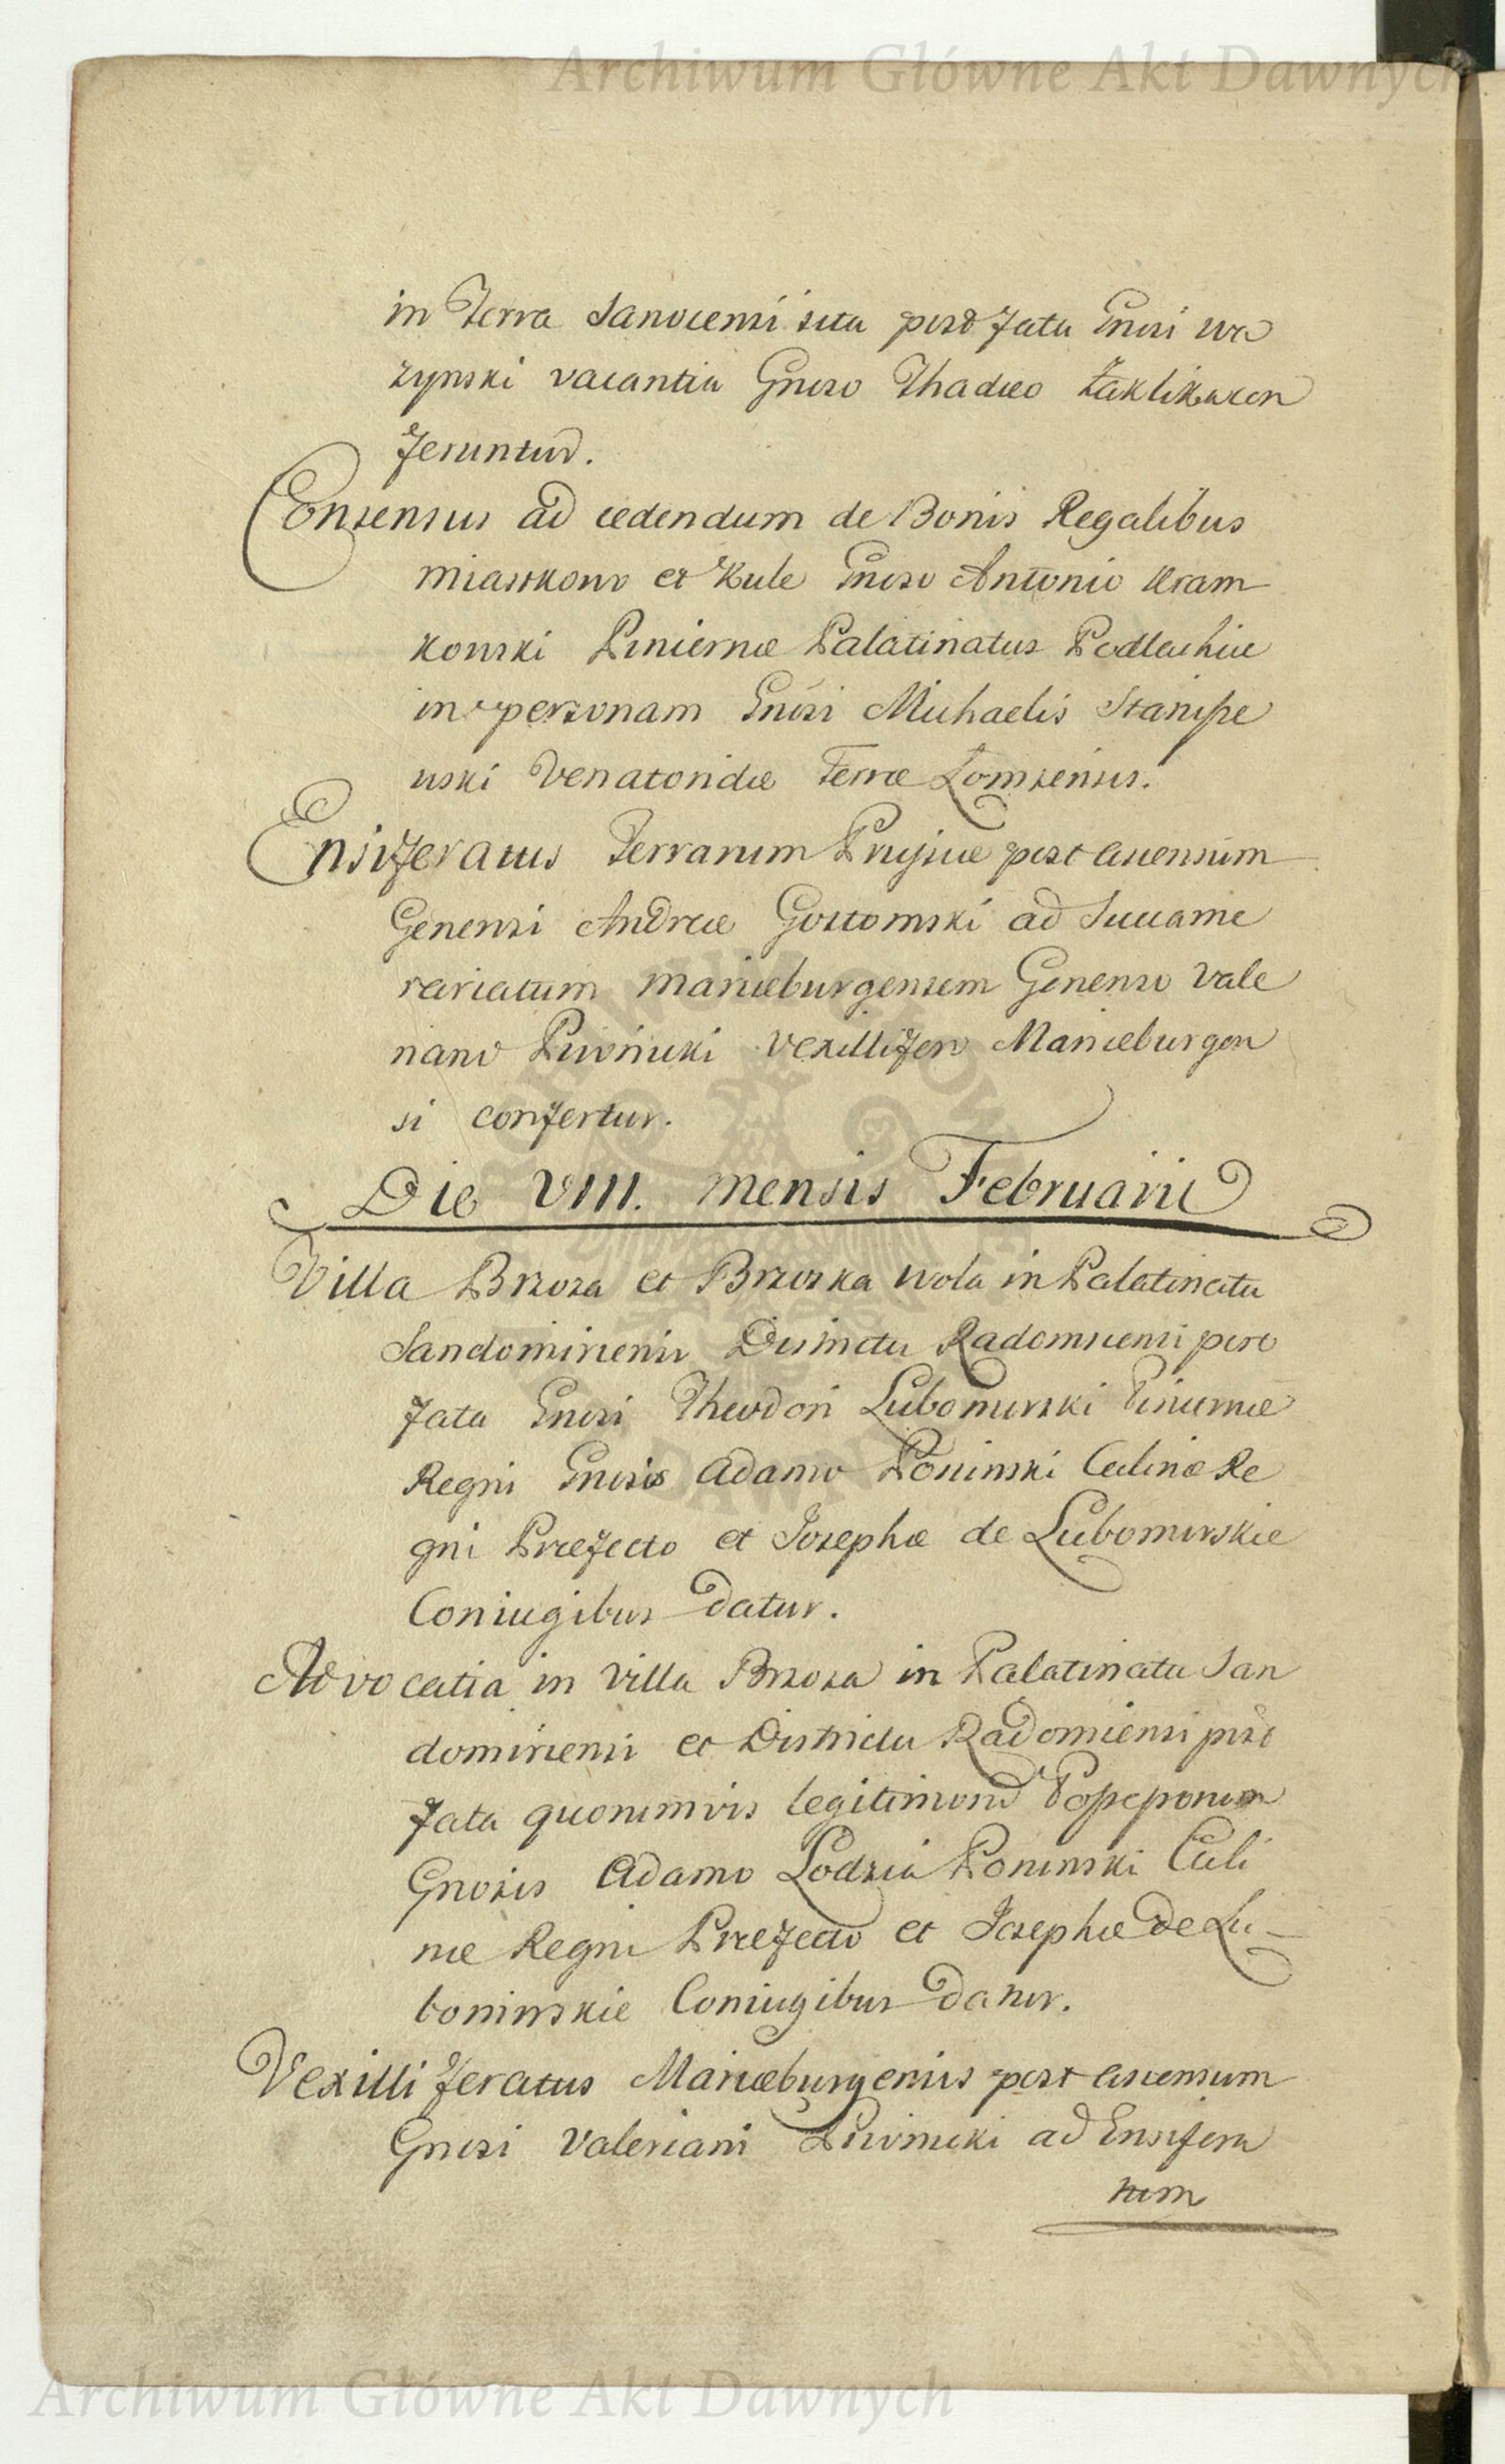 Archiwum Główne Akt Dawnych
in Terra Sanocensi sita post fata Gnosi Wo
zynski vacantia Gnoso Thadæo Zaklika con
feruntur.
Consensus ad cedendum de Bonis Regalibus
Miastkowo et Kule Gnoso Antonio Kram
kowski Pincernæ Palatinatus Podlachiæ
in personam Gnosi Michaelis Stanisze
wski Venatoridæ Terræ Łomzensis.
Ensiferatus Terrarum Prussiæ post ascensum
Generosi Andreæ Gostomski ad Succame
rariatum Mariæburgensem Generoso Vale
riano Piwnicki Vexillifero Mariæburgen
si confertur.
Die VIII. mensis Februarii
Villa Brzoza et Brzozka Wola in Palatinatu
Sandomiriensi Districtu Radomiensi post
fata Gnosi Theodori Lubomirski Pincernæ
Regni Gnosis Adamo Poninski Culinæ Re
gni Præfecto et Josephæ de Lubomirskie
Coniugibus datur.
Advocatia in Villa Brzoza in Palatinatu San
domiriensi et Districtu Radomiensi post
fata quorumvis legitimorum Possessorum
Gnosis Adamo Lodzia Poninski Culi
næ Regni Præfecto et Josephæ de Lu-
bomirskie Coniugibus datur.
Vexilliferatus Mariæburgensis post ascensum
Gnosi Valeriani Piwnicki ad Ensifera
tum
Archiwum Główne Akt Dawnych